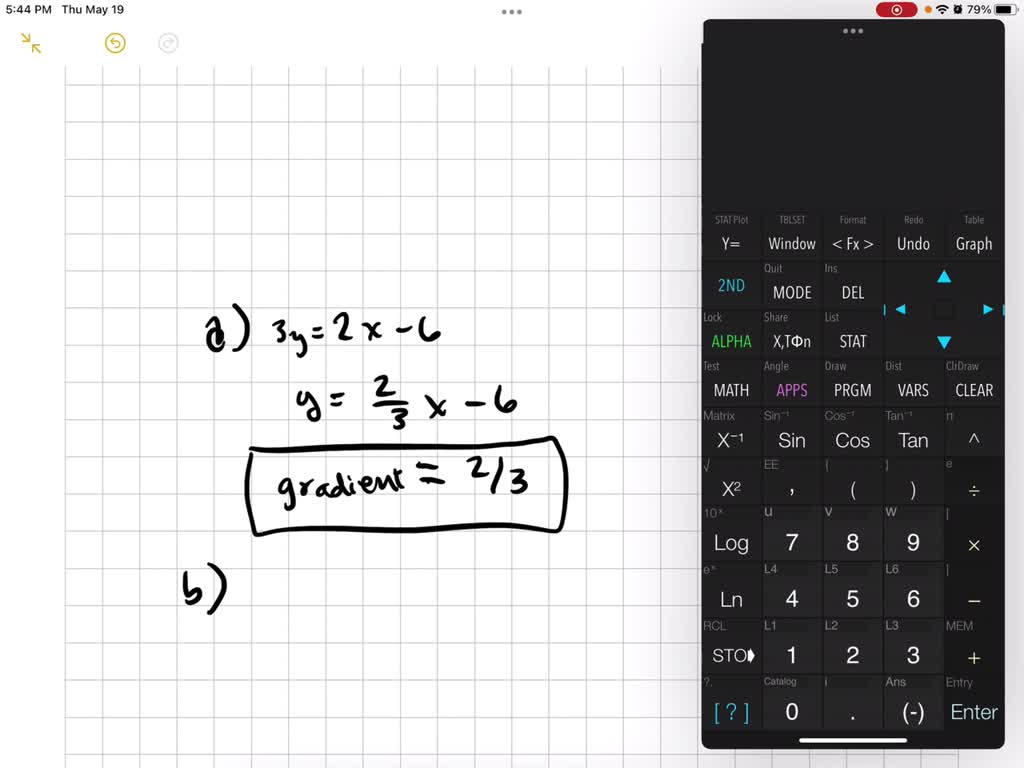 5:44 PM Thu May 19
79%
a) 3y = 2x - 6
y = 2/3 x - 6
gradient = 2/3
b)
STAT Plot TBLSET Format Redo Table
Y= Window < Fx > Undo Graph
Quit Ins
2ND MODE DEL
Lock Share List
ALPHA X,TΦn STAT
Test Angle Draw Dist ClrDraw
MATH APPS PRGM VARS CLEAR
Matrix Sin⁻¹ Cos⁻¹ Tan⁻¹ π
X⁻¹ Sin Cos Tan ^
√ EE { } e
X² , ( ) ÷
10ˣ u v w [
Log 7 8 9 ×
eˣ L4 L5 L6 ]
Ln 4 5 6 −
RCL L1 L2 L3 MEM
STO 1 2 3 +
?. Catalog i Ans Entry
[ ? ] 0 . (-) Enter